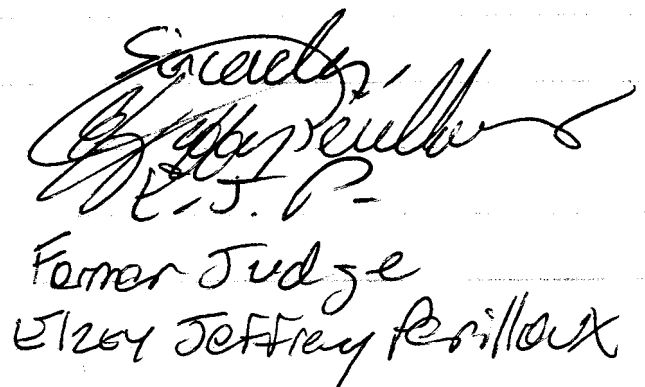 Sincerely,
E. J. P.
Former Judge
Elzey Jeffrey Perilloux